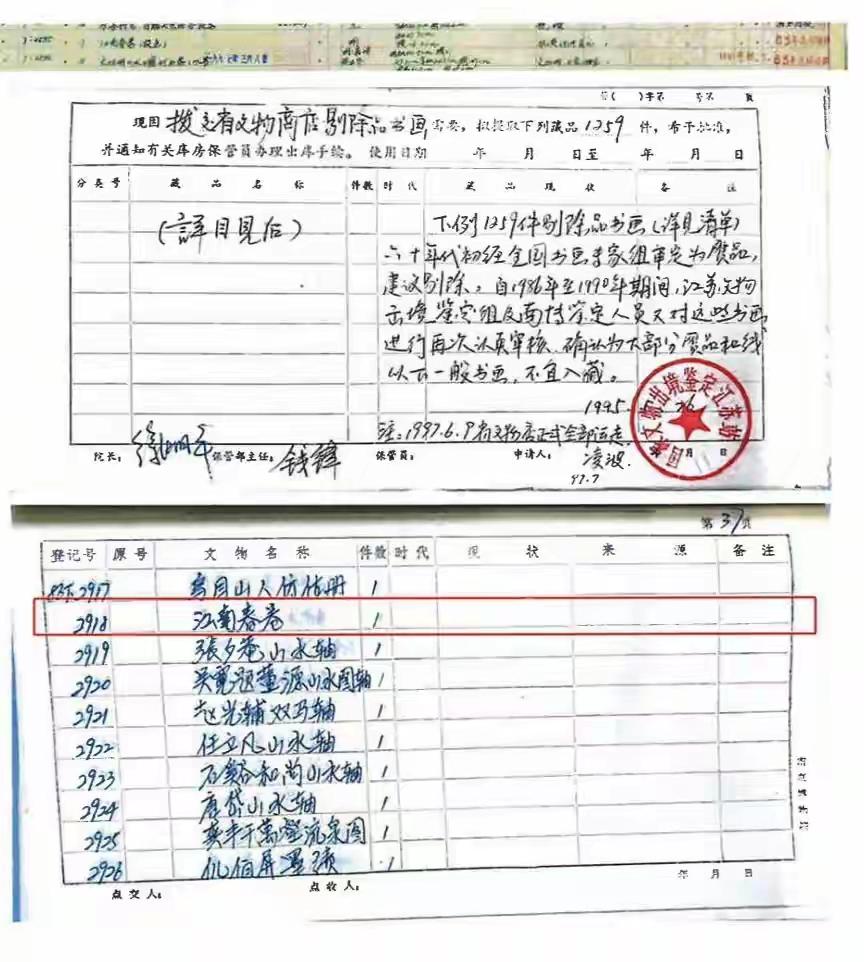 字( )字第 号第 页
现因拨交省文物商店剔除品书画需要，拟提取下列藏品1259件，希予批准，
并通知有关库房保管员办理出库手续。使用日期 年 月 日至 年 月 日
分类号 藏品名称 件数 时代 藏品现状 备注
(詳目見后)
下列1259件剔除品书画(详见清单)
六十年代初经全国书画专家组审定为赝品，
建议剔除。自1986年至1990年期间，江苏文物
出境鉴定组及南博鉴定人员又对这些书画
进行再次认真审核，确认为大部分赝品和线
以下一般书画，不宜入藏。
1995.
注:1997.6.9省文物店正式全部运走
国家文物出境鉴定江苏站
院长: 徐湖平 保管部主任: 钱锋 保管员: 申请人: 凌波 月 日
97.7
第37页
登记号 原号 文物名称 件数 时代 现状 来源 备注
2917 1
2918 江南春卷 1
2919 張夕菴山水轴 1
2920 吴寛题董源山水图轴 1
2921 赵光辅双马轴 1
2922 任立凡山水轴 1
2923 石谿和尚山水轴 1
2924 唐岱山水轴 1
2925 流泉图 1
2926 1
年 月 日
点交人: 点收人: